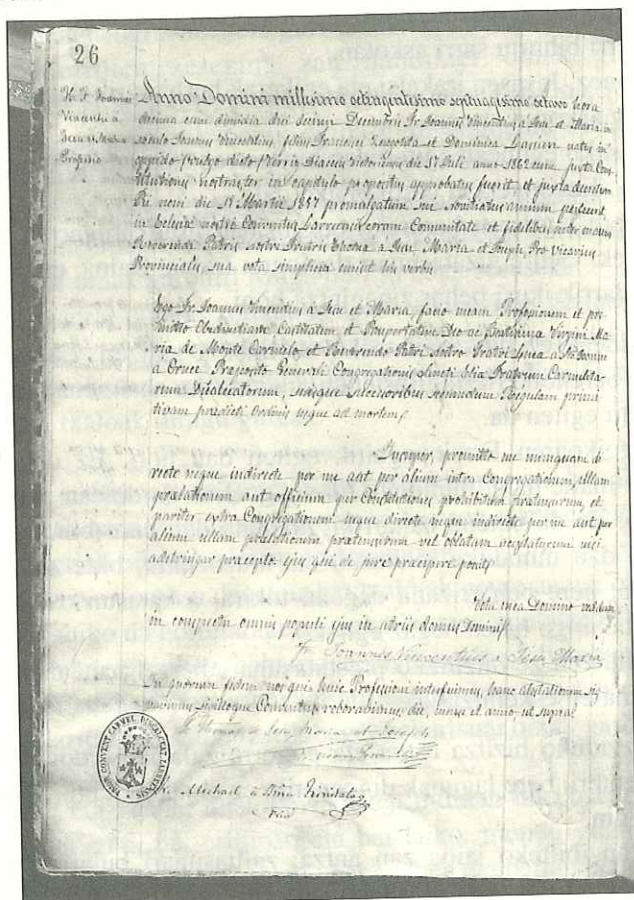 26
Anno Domini millesimo octingentesimo septuagesimo octavo hora
decima cum dimidia diei Decembris Fr. Joannes Vincentius a Jesu et Maria in
filius Francisci et Dominica natus in
oppido vulgo dicto die 17 Julii anno 1862 cum juxta Con
stitutiones nostras ter in capitulo propositus approbatus fuerit, et juxta decretum
Pii noni die 19 Martii 1857 promulgatum sui novitiatus annum
in Eclesia nostri Conventus coram Comunitate et fidelibus inter manus
Reverendi Patris nostri Fratris Thoma a Jesu Maria et Joseph, Pro-Vicarius
Provincialis, sua vota simplicia emisit his verbis
Ego Fr. Joannes Vincentius a Jesu et Maria, facio meam Profesionem et pro
mitto Obedientiam, Castitatem et Paupertatem Deo ac Beatissima Virgini Ma
ria de Monte Carmelo et Reverendo Patri Nostro Fratri Luca a Sto Joanne
a Cruce Praeposito Generali Congregationis Sancti Elia Fratrum Carmelita
rum Discalceatorum, suisque successoribus secundum Regulam primi
tivam praedicti Ordinis usque ad mortem,
Insuper, promitto me nunquam di
recte neque indirecte per me aut per alium intra Congregationem, ullam
praelationem aut officium per Constitutiones prohibitum procuraturum, et
pariter extra Congregationem neque directe neque indirecte per me aut per
alium ullam praelationem procuraturum vel oblatam acceptaturum nisi
adstringar praecepto ejus qui de jure praecipere possit
Vota mea Domino reddam
in conspectu omnis populi ejus in atriis domus Domini
Fr. Joannes Vincentius a Jesu Maria
In quorum fidem nos qui huic Professioni interfuimus, hanc
Conventus roboravimus die, mense et anno ut supra
Fr. Thomas a Jesu Maria et Joseph
Fr. Michael a Trinitate